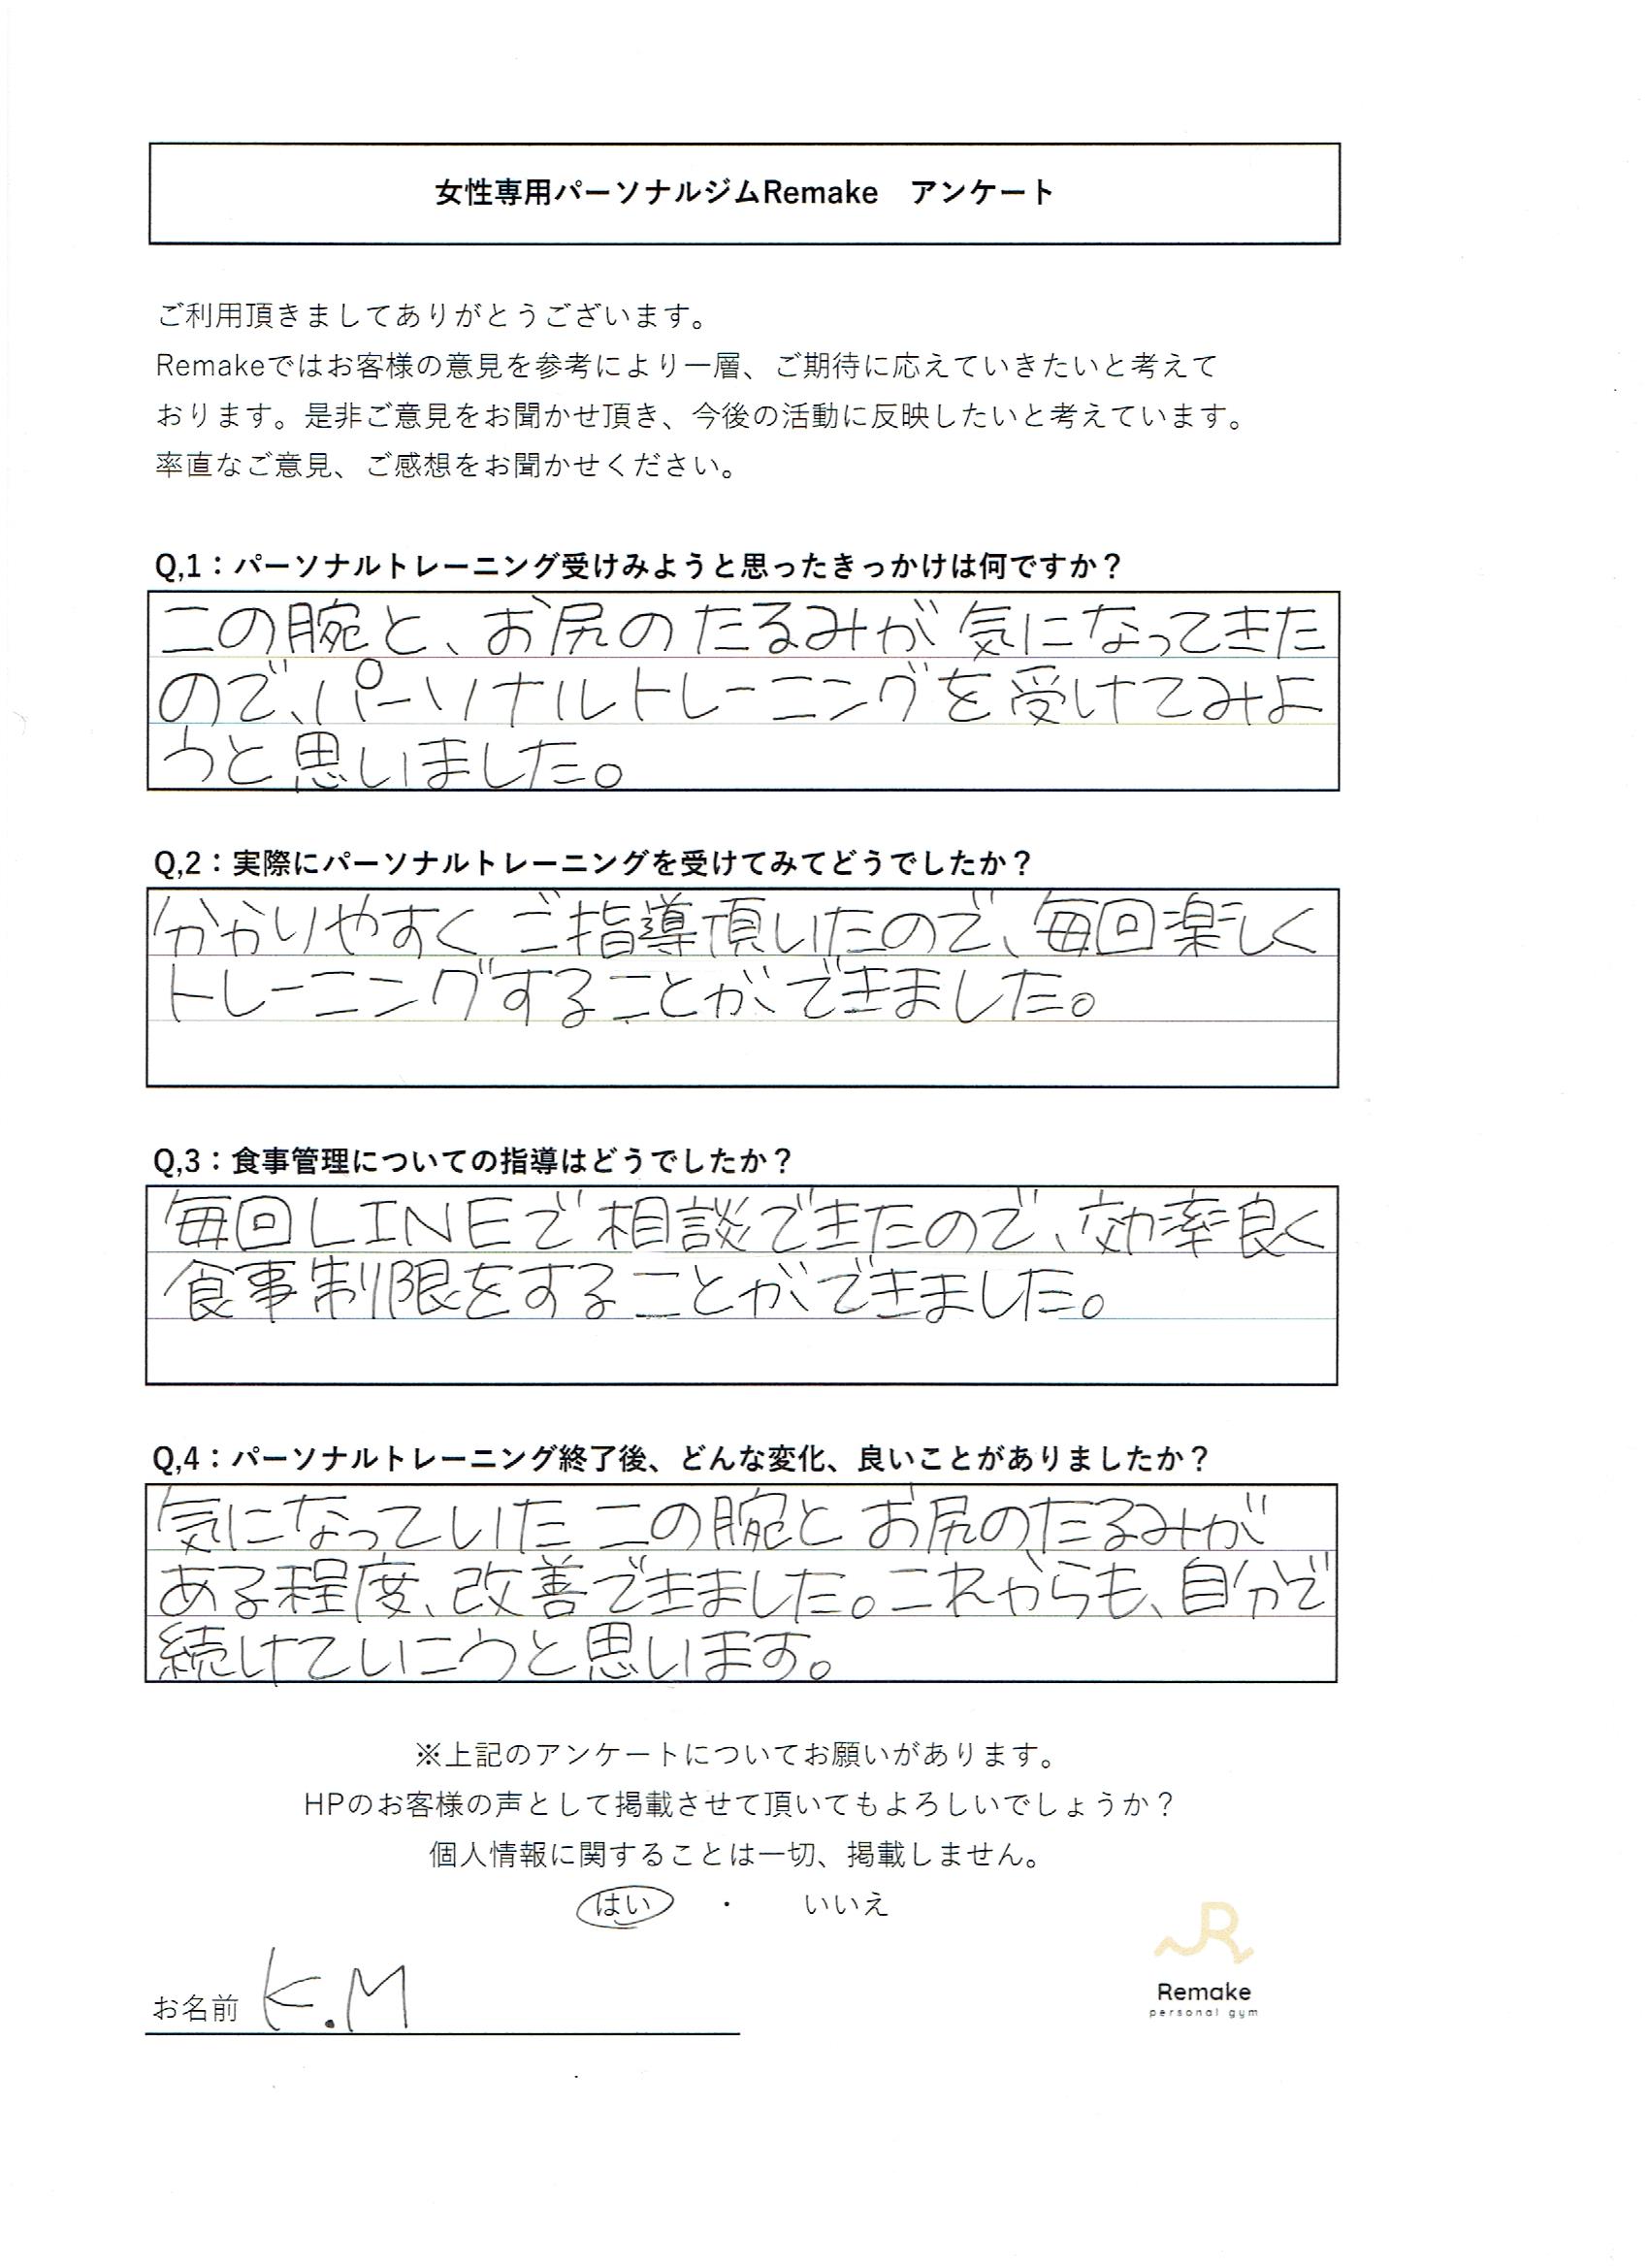 女性専用パーソナルジムRemake　アンケート
ご利用頂きましてありがとうございます。
Remakeではお客様の意見を参考により一層、ご期待に応えていきたいと考えて
おります。是非ご意見をお聞かせ頂き、今後の活動に反映したいと考えています。
率直なご意見、ご感想をお聞かせください。
Q,1：パーソナルトレーニング受けみようと思ったきっかけは何ですか？
二の腕と、お尻のたるみが気になってきた
ので、パーソナルトレーニングを受けてみよ
うと思いました。
Q,2：実際にパーソナルトレーニングを受けてみてどうでしたか？
分かりやすくご指導頂いたので、毎回楽しく
トレーニングすることができました。
Q,3：食事管理についての指導はどうでしたか？
毎回LINEで相談できたので、効率良く
食事制限をすることができました。
Q,4：パーソナルトレーニング終了後、どんな変化、良いことがありましたか？
気になっていた二の腕とお尻のたるみが
ある程度、改善できました。これからも、自分で
続けていこうと思います。
※上記のアンケートについてお願いがあります。
HPのお客様の声として掲載させて頂いてもよろしいでしょうか？
個人情報に関することは一切、掲載しません。
はい　・　いいえ
お名前 K.M
Remake
personal gym